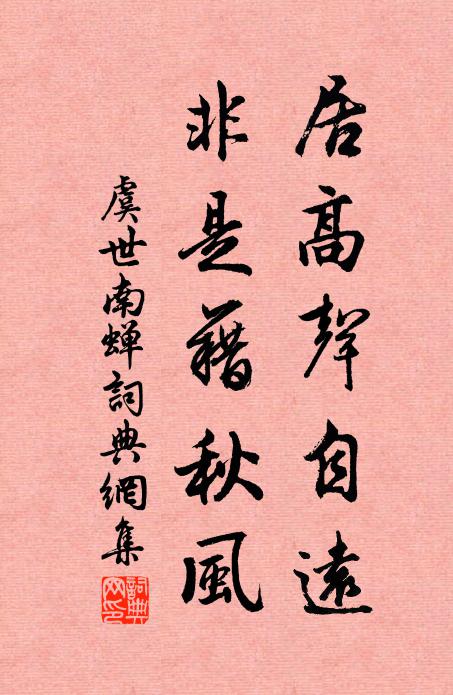 居高聲自遠
非是藉秋風
虞世南蝉詞典網集
詞典
网印